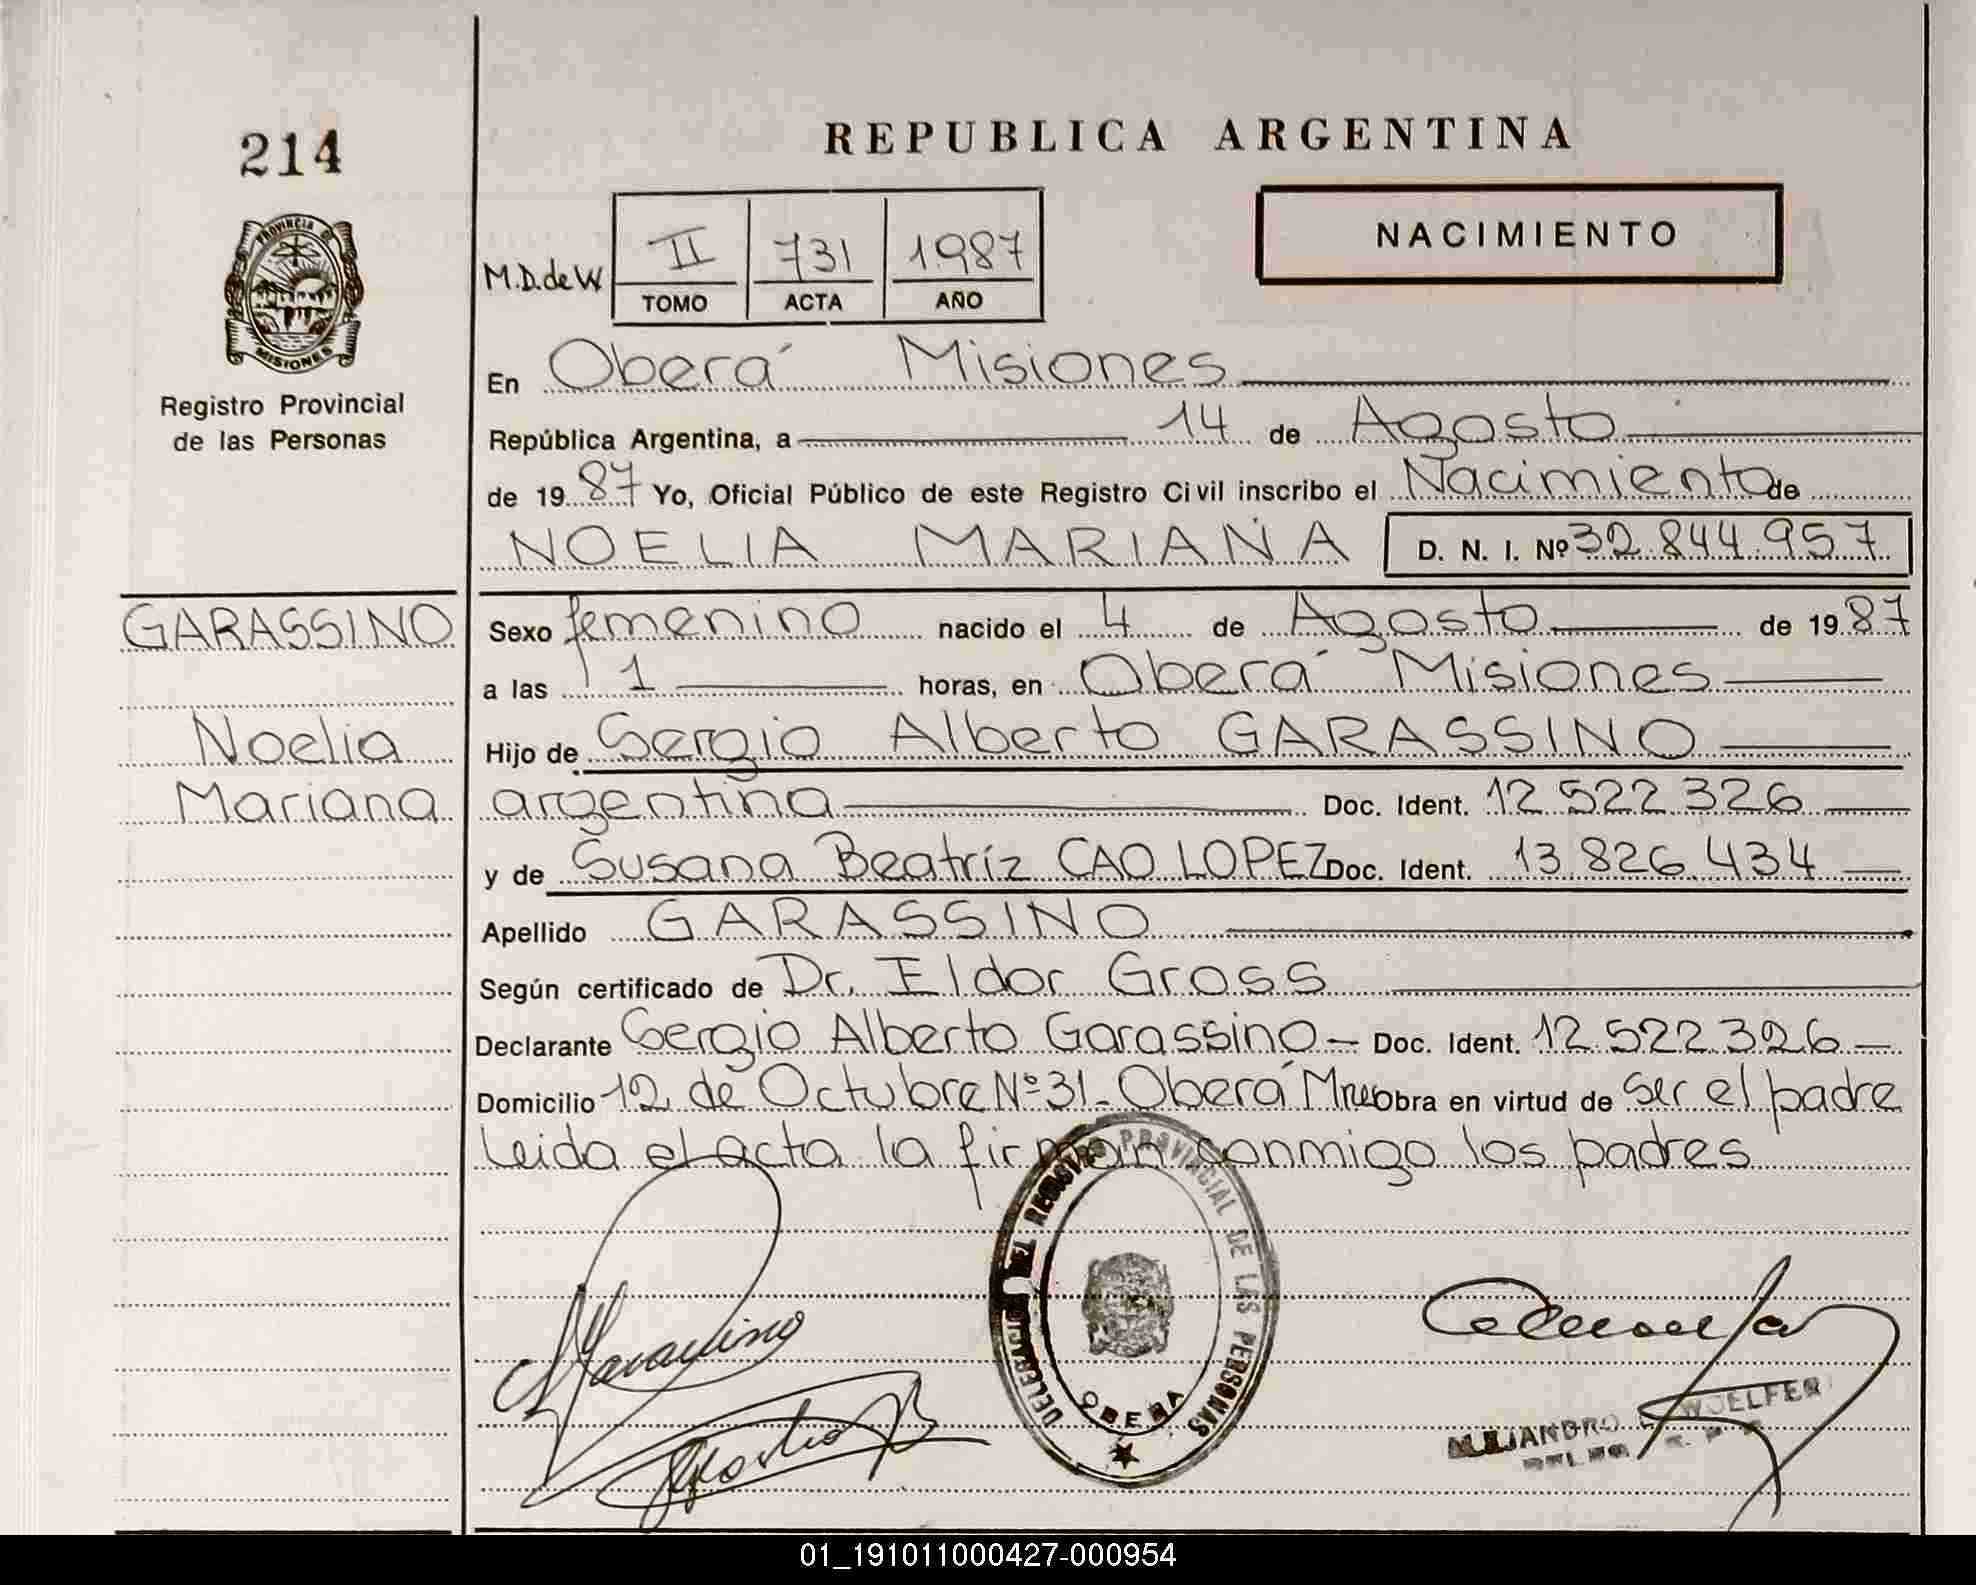 214
REPUBLICA ARGENTINA
NACIMIENTO
M.D.deW
II 731 1987
TOMO ACTA AÑO
PROVINCIA DE
MISIONES
Registro Provincial
de las Personas
En Oberá Misiones
República Argentina, a 14 de Agosto
de 1987 Yo, Oficial Público de este Registro Civil inscribo el Nacimiento de
NOELIA MARIANA D. N. I. Nº 32.844.957
GARASSINO
Noelia
Mariana
Sexo femenino nacido el 4 de Agosto de 1987
a las 1 horas, en Oberá Misiones
Hijo de Sergio Alberto GARASSINO
argentina Doc. Ident. 12.522.326
y de Susana Beatríz CAO LOPEZ Doc. Ident. 13.826.434
Apellido GARASSINO
Según certificado de Dr. Eldor Gross
Declarante Sergio Alberto Garassino - Doc. Ident. 12.522.326
Domicilio 12 de Octubre Nº 31- Oberá Mnes Obra en virtud de ser el padre
Leida el acta la firman conmigo los padres
DELEGACION DEL REGISTRO PROVINCIAL DE LAS PERSONAS
OBERA
ALEJANDRO WOELFER
01_191011000427-000954